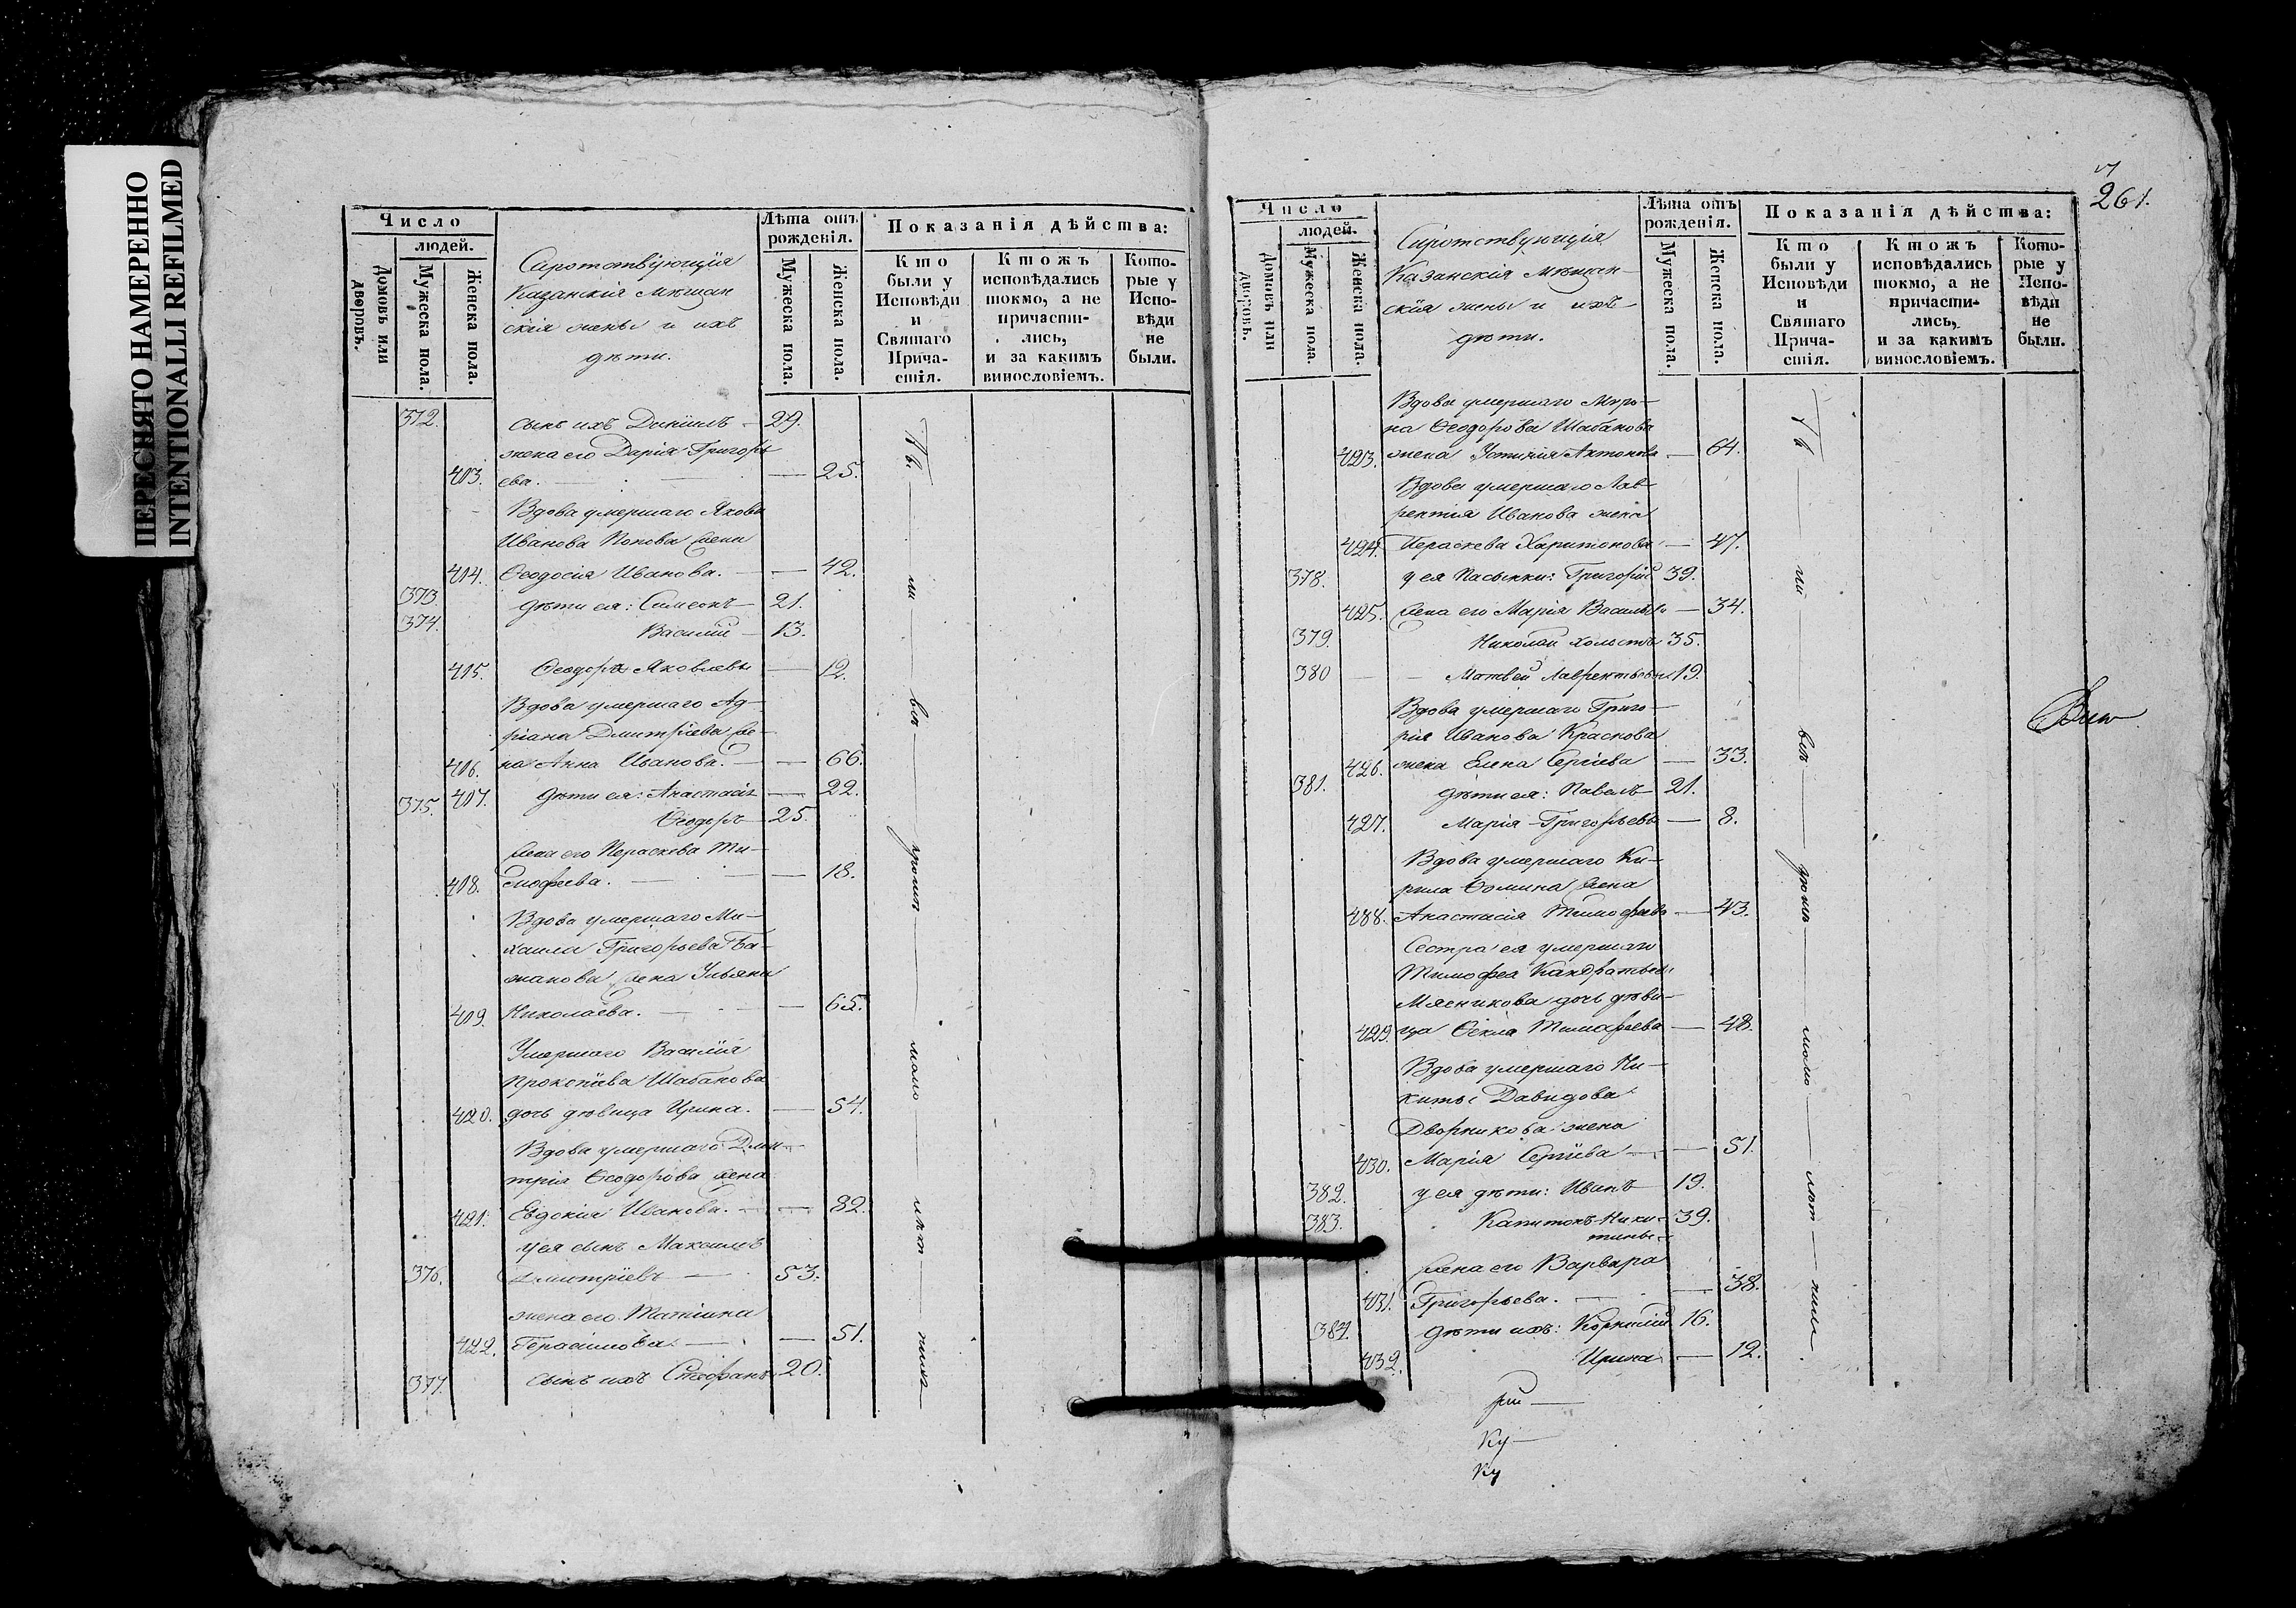 ПЕРЕСНЯТО НАМЕРЕННО
INTENTIONALLI REFILMED
Число
людей.
Домовъ или дворовъ.
Мужеска пола.
Женска пола.
Сиротствующiя
Казанскiя мѣщан
скiя жены и ихъ
дѣти.
Лѣта отъ
рожденiя.
Мужеска пола.
Женска пола.
Показанiя дѣйства:
Кто
были у
Исповѣди
и
Святаго
Прича-
стiя.
Ктожъ
исповѣдались
токмо, а не
причасти-
лись,
и за какимъ
винословiемъ.
Кото-
рые у
Испо-
вѣди
не
были.
372. сынъ ихъ Данiилъ 29.
жена его Дарiя Григорь
403. ева. 25.
Вдова умершаго Якова
Иванова Попова жена
404. Ѳеодосiя Иванова. 42.
373. дѣти ея: Симеонъ 21.
374. Василiй 13.
405. Ѳеодора Яковлевы 12.
Вдова умершаго Ад-
рiана Дмитрiева же-
406. на Анна Иванова. 66.
407. дѣти ея: Анастасiя 22.
375. Ѳеодоръ 25.
жена его Пераскева Ти-
408. моѳеева. 18.
Вдова умершаго Ми-
хаила Григорьева Ба-
жанова жена Ульяна
409. Николаева. 65.
Умершаго Василiя
Прокопiева Шабанова
420. дочь дѣвица Ирина. 54.
Вдова умершаго Дми-
трiя Ѳеодорова жена
421. Евдокiя Иванова. 82.
у ея сынъ Максимъ
376. Дмитрiевъ 53.
жена его Татiана
422. Герасимова. 51.
377. сынъ ихъ Стефанъ 20.
261.
Число
людей.
Домовъ или дворовъ.
Мужеска пола.
Женска пола.
Сиротствующiя
Казанскiя мѣщан-
скiя жены и ихъ
дѣти.
Лѣта отъ
рожденiя.
Мужеска пола.
Женска пола.
Показанiя дѣйства:
Кто
были у
Исповѣди
и
Святаго
Прича-
стiя.
Ктожъ
исповѣдались
токмо, а не
причасти-
лись,
и за какимъ
винословiемъ.
Кото-
рые у
Испо-
вѣди
не
были.
Вдова умершаго Миро-
на Ѳеодорова Шабанова
423. жена Устинiя Антонова 64.
Вдова умершаго Лав-
рентiя Иванова жена
424. Пераскева Харитонова 47.
378. у ея пасынки: Григорiй 39.
425. жена его Марiя Васильев 34.
379. Николай холостъ 35.
380 Матвей Лаврентьевы 19.
Вдова умершаго Григо-
рiя Иванова Краснова
426. жена Елена Сергiева 33.
381. дѣти ея: Павелъ 21.
427. Марiя Григорьевы 8.
Вдова умершаго Ки-
рила Ѳомина жена
488. Анастасiя Тимоѳеева 43.
Сестра ея умершаго
Тимофеа Кандратьева
Мясникова дочь дѣви-
429. ца Ѳекла Тимаѳеева 48.
Вдова умершаго Ни-
киты Давидова
Дворникова жена
430. Марiя Сергiева 51.
382. у ея дѣти: Иванъ 19.
383. Капитонъ Ники- 39.
тины
жена его Варвара
431. Григорьева. 38.
384. дѣти ихъ: Корнилiй 16.
432. Ирина 12.
рiй
Ку
Ку